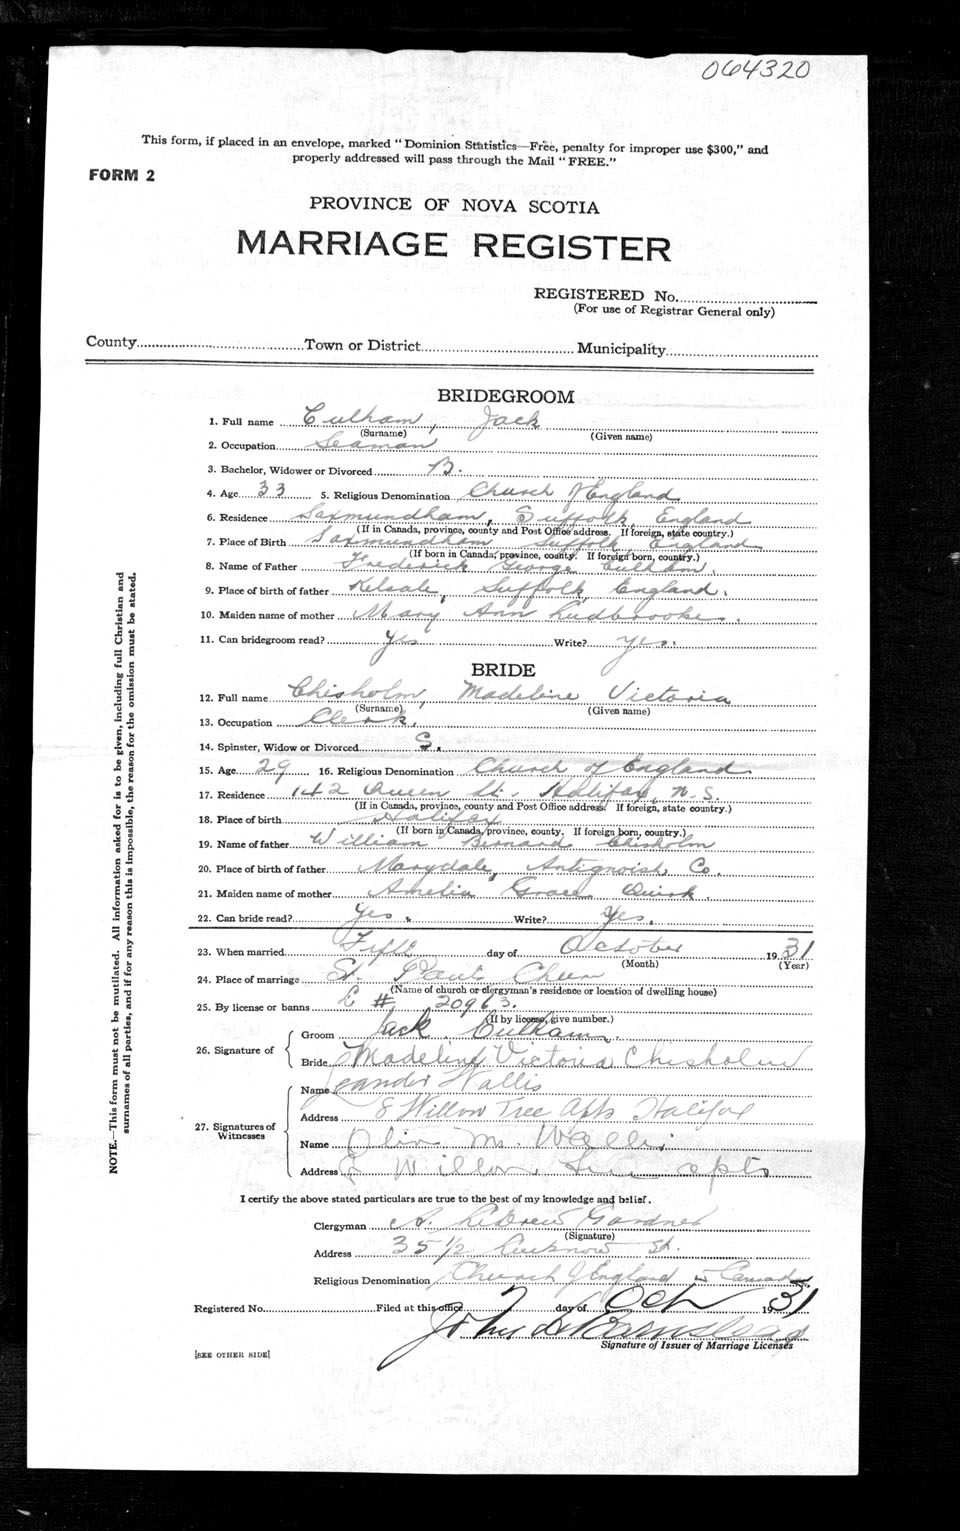 064320
This form, if placed in an envelope, marked "Dominion Statistics—Free, penalty for improper use $300," and
properly addressed will pass through the Mail "FREE."
FORM 2
PROVINCE OF NOVA SCOTIA
MARRIAGE REGISTER
REGISTERED No.
(For use of Registrar General only)
County Town or District Municipality
BRIDEGROOM
1. Full name Culham, Jack
(Surname) (Given name)
2. Occupation Seaman
3. Bachelor, Widower or Divorced B.
4. Age 33 5. Religious Denomination Church of England
6. Residence Saxmundham, Suffolk, England
(If in Canada, province, county and Post Office address. If foreign, state country.)
7. Place of Birth Saxmundham Suffolk England
(If born in Canada, province, county. If foreign born, country.)
8. Name of Father Frederick George Culham.
9. Place of birth of father Kelsale, Suffolk, England.
10. Maiden name of mother Mary Ann Ludbrooke.
11. Can bridegroom read? Yes Write? Yes.
BRIDE
12. Full name Chisholm, Madeline Victoria
(Surname) (Given name)
13. Occupation Clerk.
14. Spinster, Widow or Divorced S.
15. Age 29 16. Religious Denomination Church of England.
17. Residence 142 Queen St. Halifax, N.S.
(If in Canada, province, county and Post Office address. If foreign, state country.)
18. Place of birth Halifax
(If born in Canada, province, county. If foreign born, country.)
19. Name of father William Bernard Chisholm
20. Place of birth of father Marydale, Antigonish Co.
21. Maiden name of mother Amelia Grace Quirk.
22. Can bride read? Yes. Write? Yes.
23. When married Fifth day of October 1931
(Month) (Year)
24. Place of marriage St. Pauls
(Name of church or clergyman's residence or location of dwelling house)
25. By license or banns L # 20963.
(If by license, give number.)
26. Signature of Groom Jack Culham.
Bride Madeline Victoria Chisholm
27. Signatures of Witnesses Name Leander Wallis
Address 8 Willow Tree Apts Halifax
Name M. Wallis
Address 8 Willow Tree apts
I certify the above stated particulars are true to the best of my knowledge and belief.
Clergyman A. Gardner
(Signature)
Address 35 1/2 Lucknow St.
Religious Denomination Church of England in Canada
Registered No. Filed at this office 7 day of Oct 1931
John
Signature of Issuer of Marriage Licenses
[SEE OTHER SIDE]
NOTE.—This form must not be mutilated. All information asked for is to be given, including full Christian and
surnames of all parties, and if for any reason this is impossible, the reason for the omission must be stated.